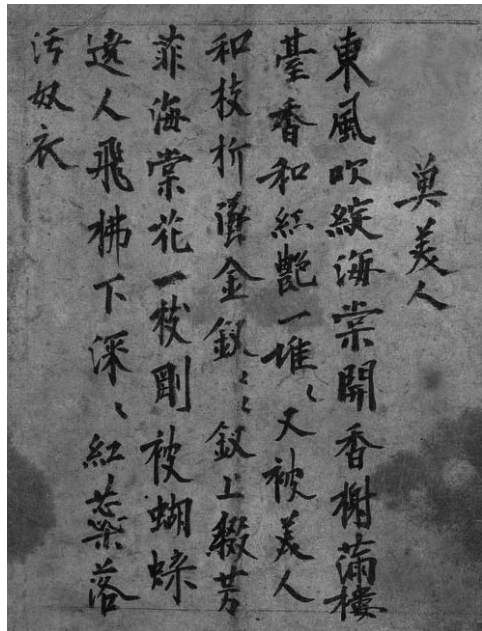 莫美人
東風吹綻海棠開香榭滿樓
臺香和紅艷一堆〻又被美人
和枝折墜金釵〻〻釵上綴芳
菲海棠花一枝剛被蝴蝶
遶人飛拂下深〻紅蘂落
污奴衣